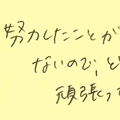 努力したことが
ないので、ど
頑張っ